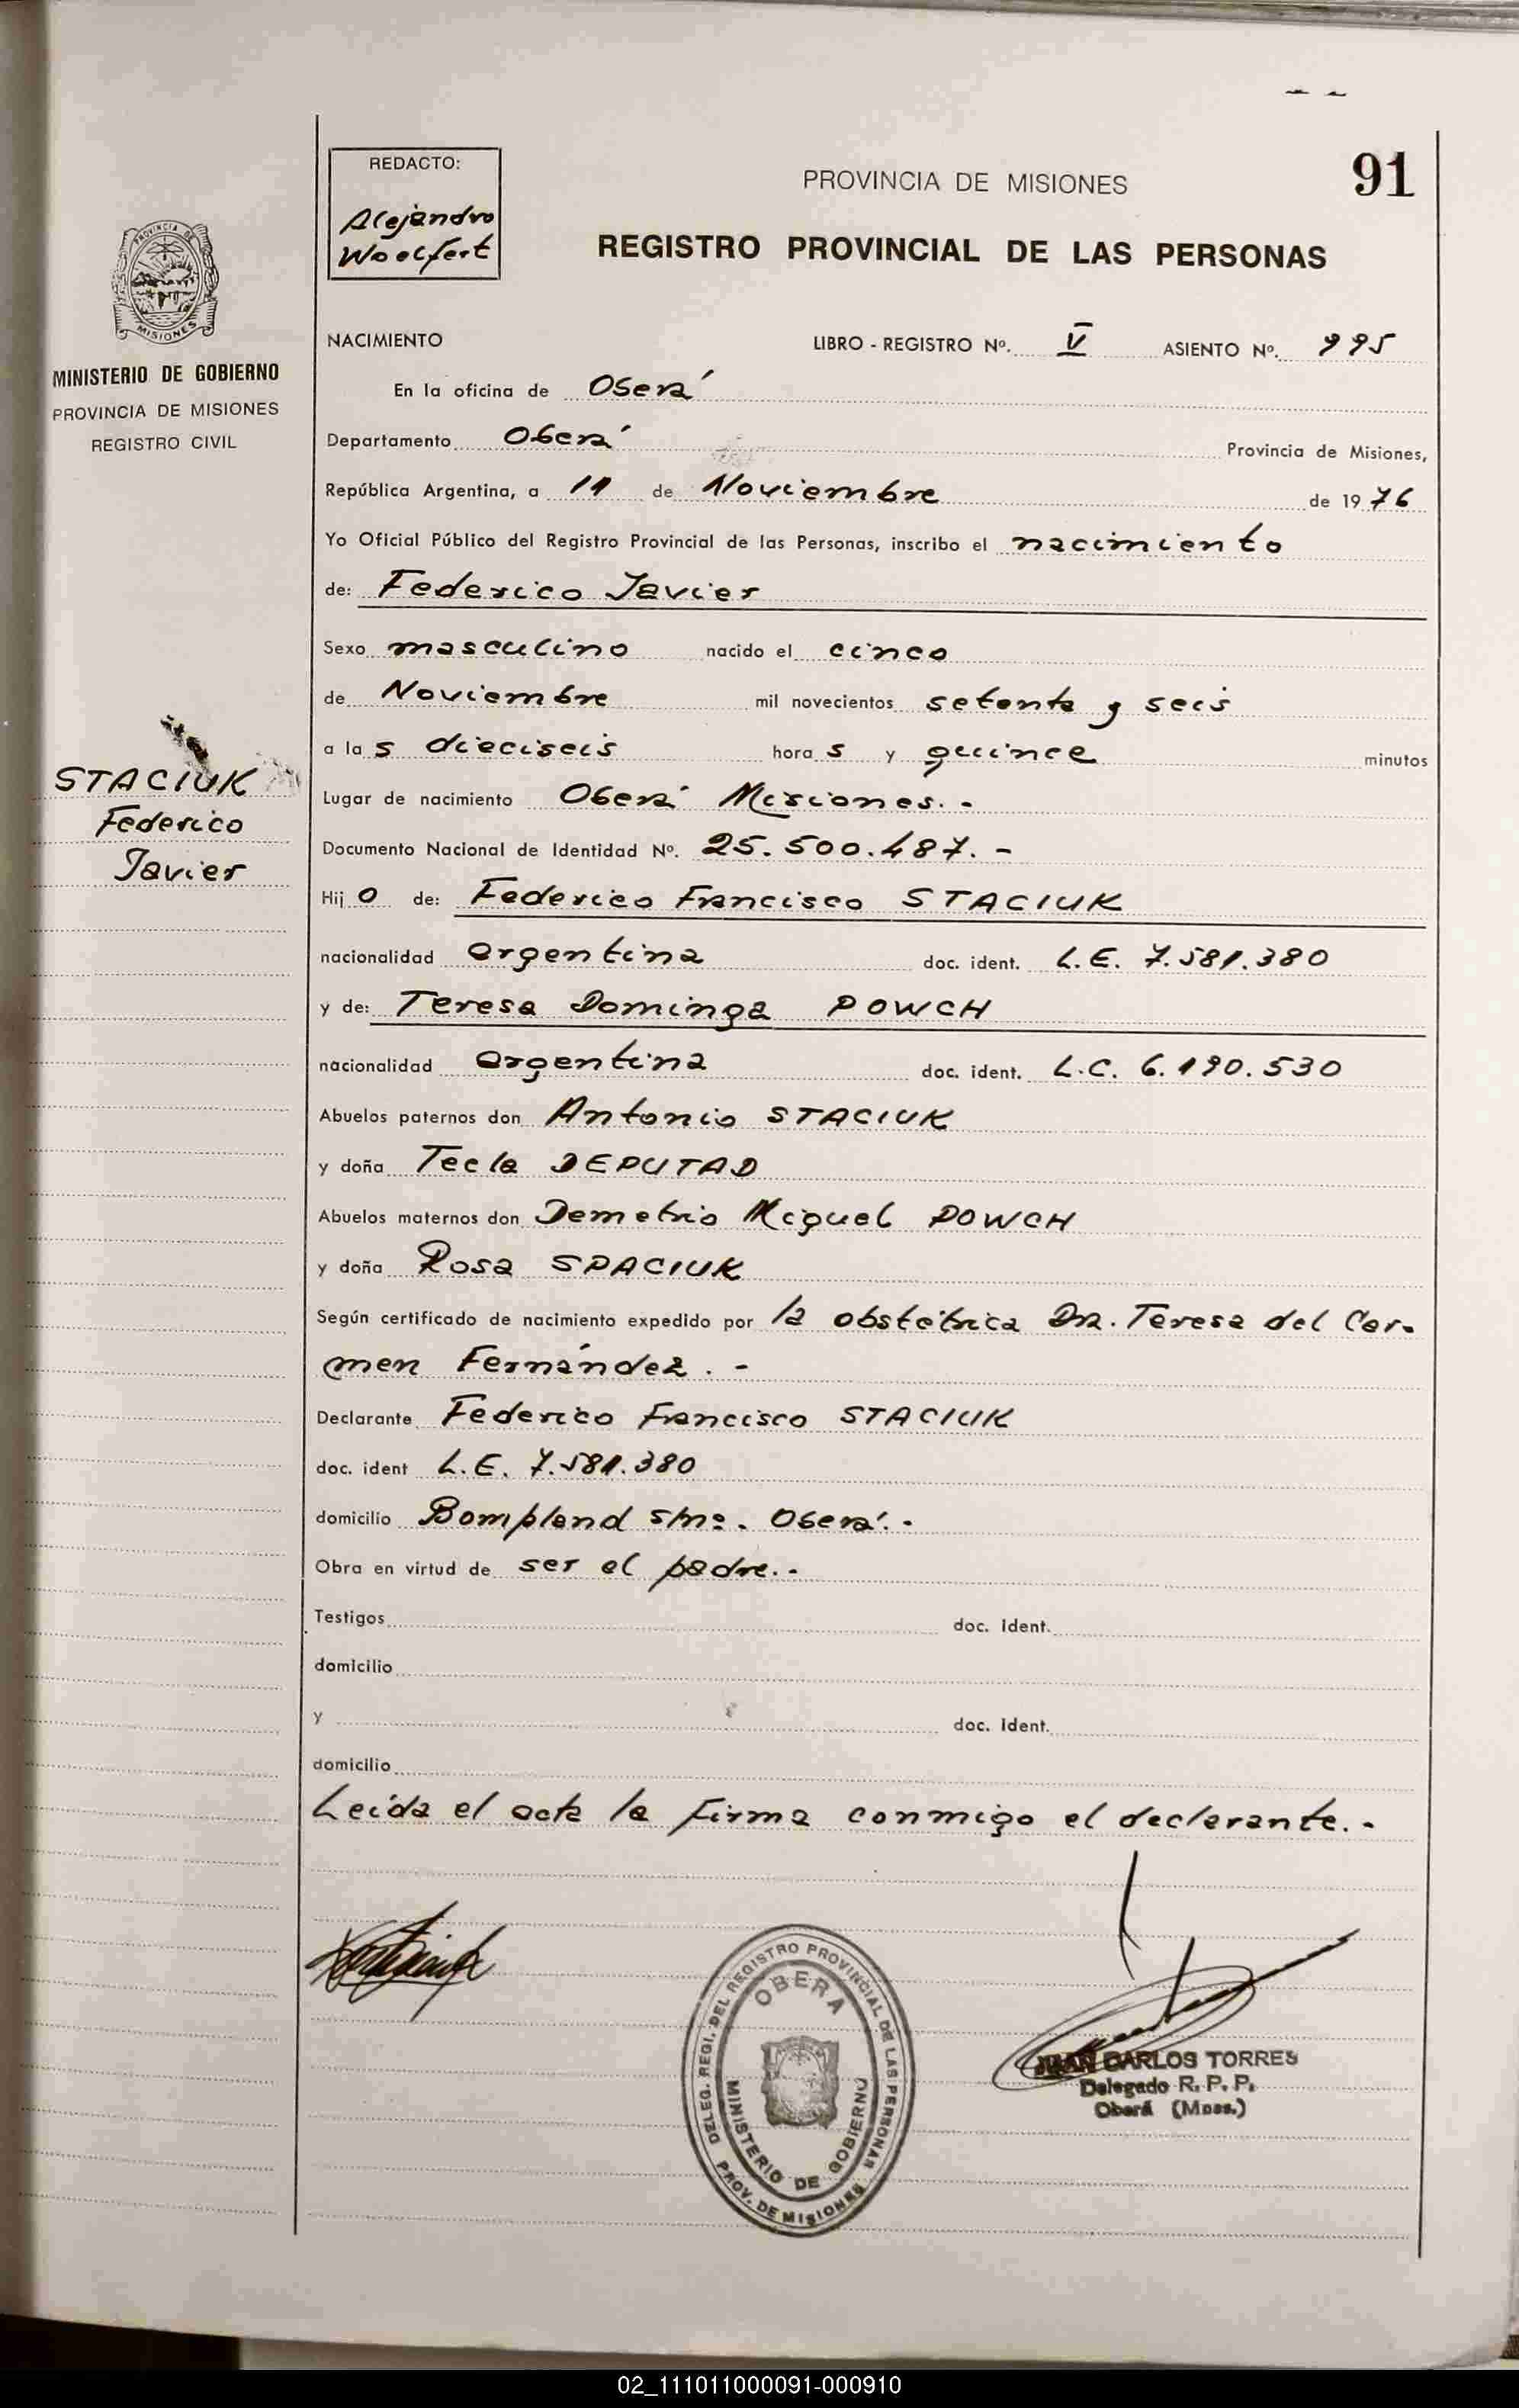 91
REDACTO:
Alejandro
Woelfert
PROVINCIA DE MISIONES
REGISTRO PROVINCIAL DE LAS PERSONAS
PROVINCIA DE
MISIONES
MINISTERIO DE GOBIERNO
PROVINCIA DE MISIONES
REGISTRO CIVIL
NACIMIENTO LIBRO - REGISTRO Nº. V ASIENTO Nº. 995
En la oficina de Oberá
Departamento Oberá Provincia de Misiones,
República Argentina, a 11 de Noviembre de 1976
Yo Oficial Público del Registro Provincial de las Personas, inscribo el nacimiento
de: Federico Javier
Sexo masculino nacido el cinco
de Noviembre mil novecientos setenta y seis
a las dieciseis horas y quince minutos
STACIUK
Federico
Javier
Lugar de nacimiento Oberá Misiones.-
Documento Nacional de Identidad Nº. 25.500.487.-
Hijo de: Federico Francisco STACIUK
nacionalidad argentina doc. ident. L.E. 7.581.380
y de: Teresa Dominga POWCH
nacionalidad argentina doc. ident. L.C. 6.190.530
Abuelos paternos don Antonio STACIUK
y doña Tecla DEPUTAD
Abuelos maternos don Demetrio Miguel POWCH
y doña Rosa SPACIUK
Según certificado de nacimiento expedido por la obstétrica Dra. Teresa del Car-
men Fernández.-
Declarante Federico Francisco STACIUK
doc. ident L.E. 7.581.380
domicilio Bompland s/nº. Oberá.-
Obra en virtud de ser el padre.-
Testigos doc. Ident.
domicilio
y doc. Ident.
domicilio
Leída el acta la firma conmigo el declarante.-
DELEG. REGI. DEL REGISTRO PROVINCIAL DE LAS PERSONAS
OBERA
MINISTERIO DE GOBIERNO
PROV. DE MISIONES
JUAN CARLOS TORRES
Delegado R. P. P.
Oberá (Mnes.)
02_111011000091-000910